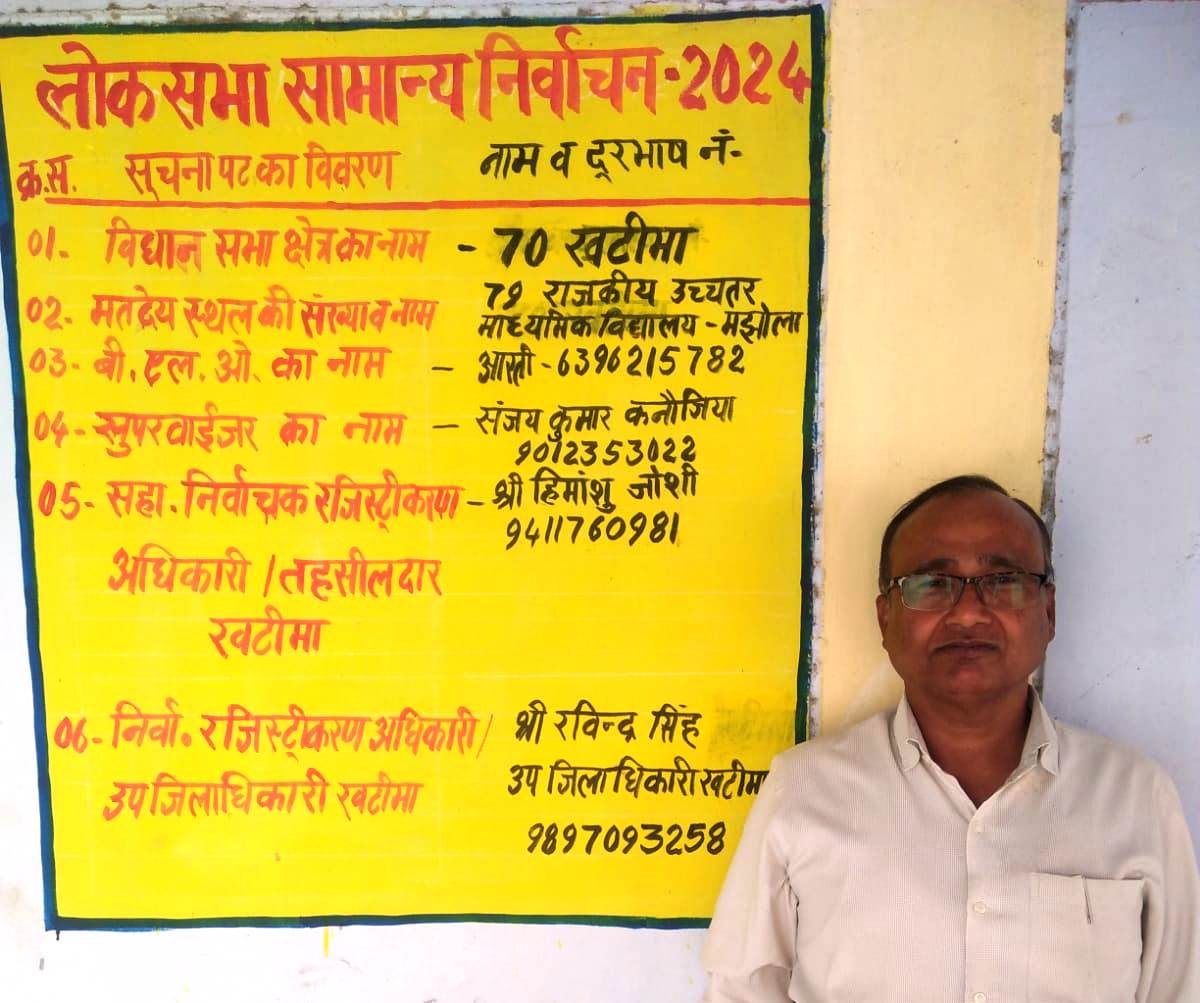 लोक सभा सामान्य निर्वाचन-2024
क्र.स. सूचना पट का विवरण नाम व दूरभाष नं-
01- विधान सभा क्षेत्र का नाम - 70 खटीमा
02- मतदेय स्थल की संख्या व नाम 79 राजकीय उच्चतर
माध्यमिक विद्यालय - मझोला
03- बी. एल. ओ. का नाम - आरती - 6396215782
04- सुपरवाईजर का नाम - संजय कुमार कनौजिया
9012353022
05- सहा. निर्वाचक रजिस्ट्रीकरण - श्री हिमांशु जोशी
9411760981
अधिकारी / तहसीलदार
खटीमा
06- निर्वा. रजिस्ट्रीकरण अधिकारी / श्री रविन्द्र सिंह
उप जिलाधिकारी खटीमा उप जिलाधिकारी खटीमा
9897093258